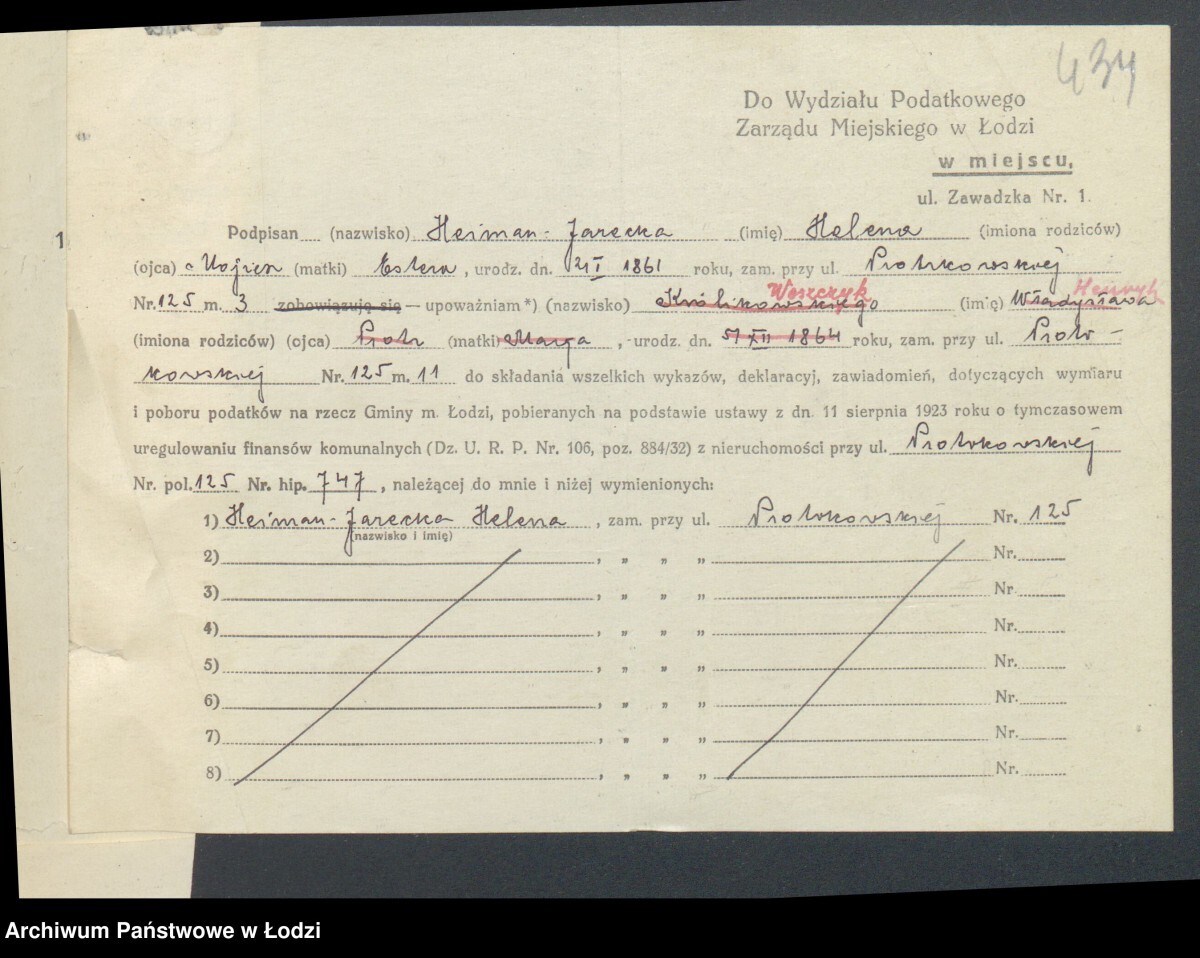 434
Do Wydziału Podatkowego
Zarządu Miejskiego w Łodzi
w miejscu,
ul. Zawadzka Nr. 1.
1
Podpisan (nazwisko) Heiman-Jarecka (imię) Helena (imiona rodziców)
(ojca) (matki) Estera, urodz. dn. 21 I 1861 roku, zam. przy ul. Piotrkowskiej
Woszczyk Henryk
Nr. 125 m. 3 zobowiązuję się — upoważniam *) (nazwisko) Królikowskiego (imię) Władysława
(imiona rodziców) (ojca) Piotr (matki) Marja, urodz. dn. 5 XII 1864 roku, zam. przy ul. Piotr-
kowskiej Nr. 125 m. 11 do składania wszelkich wykazów, deklaracyj, zawiadomień, dotyczących wymiaru
i poboru podatków na rzecz Gminy m. Łodzi, pobieranych na podstawie ustawy z dn. 11 sierpnia 1923 roku o tymczasowem
uregulowaniu finansów komunalnych (Dz. U. R. P. Nr. 106, poz. 884/32) z nieruchomości przy ul. Piotrkowskiej
Nr. pol. 125 Nr. hip. 747, należącej do mnie i niżej wymienionych:
1) Heiman-Jarecka Helena, zam. przy ul. Piotrkowskiej Nr. 125
(nazwisko i imię)
2) , „ „ „ Nr.
3) , „ „ „ Nr.
4) , „ „ „ Nr.
5) , „ „ „ Nr.
6) , „ „ „ Nr.
7) , „ „ „ Nr.
8) , „ „ „ Nr.
Archiwum Państwowe w Łodzi